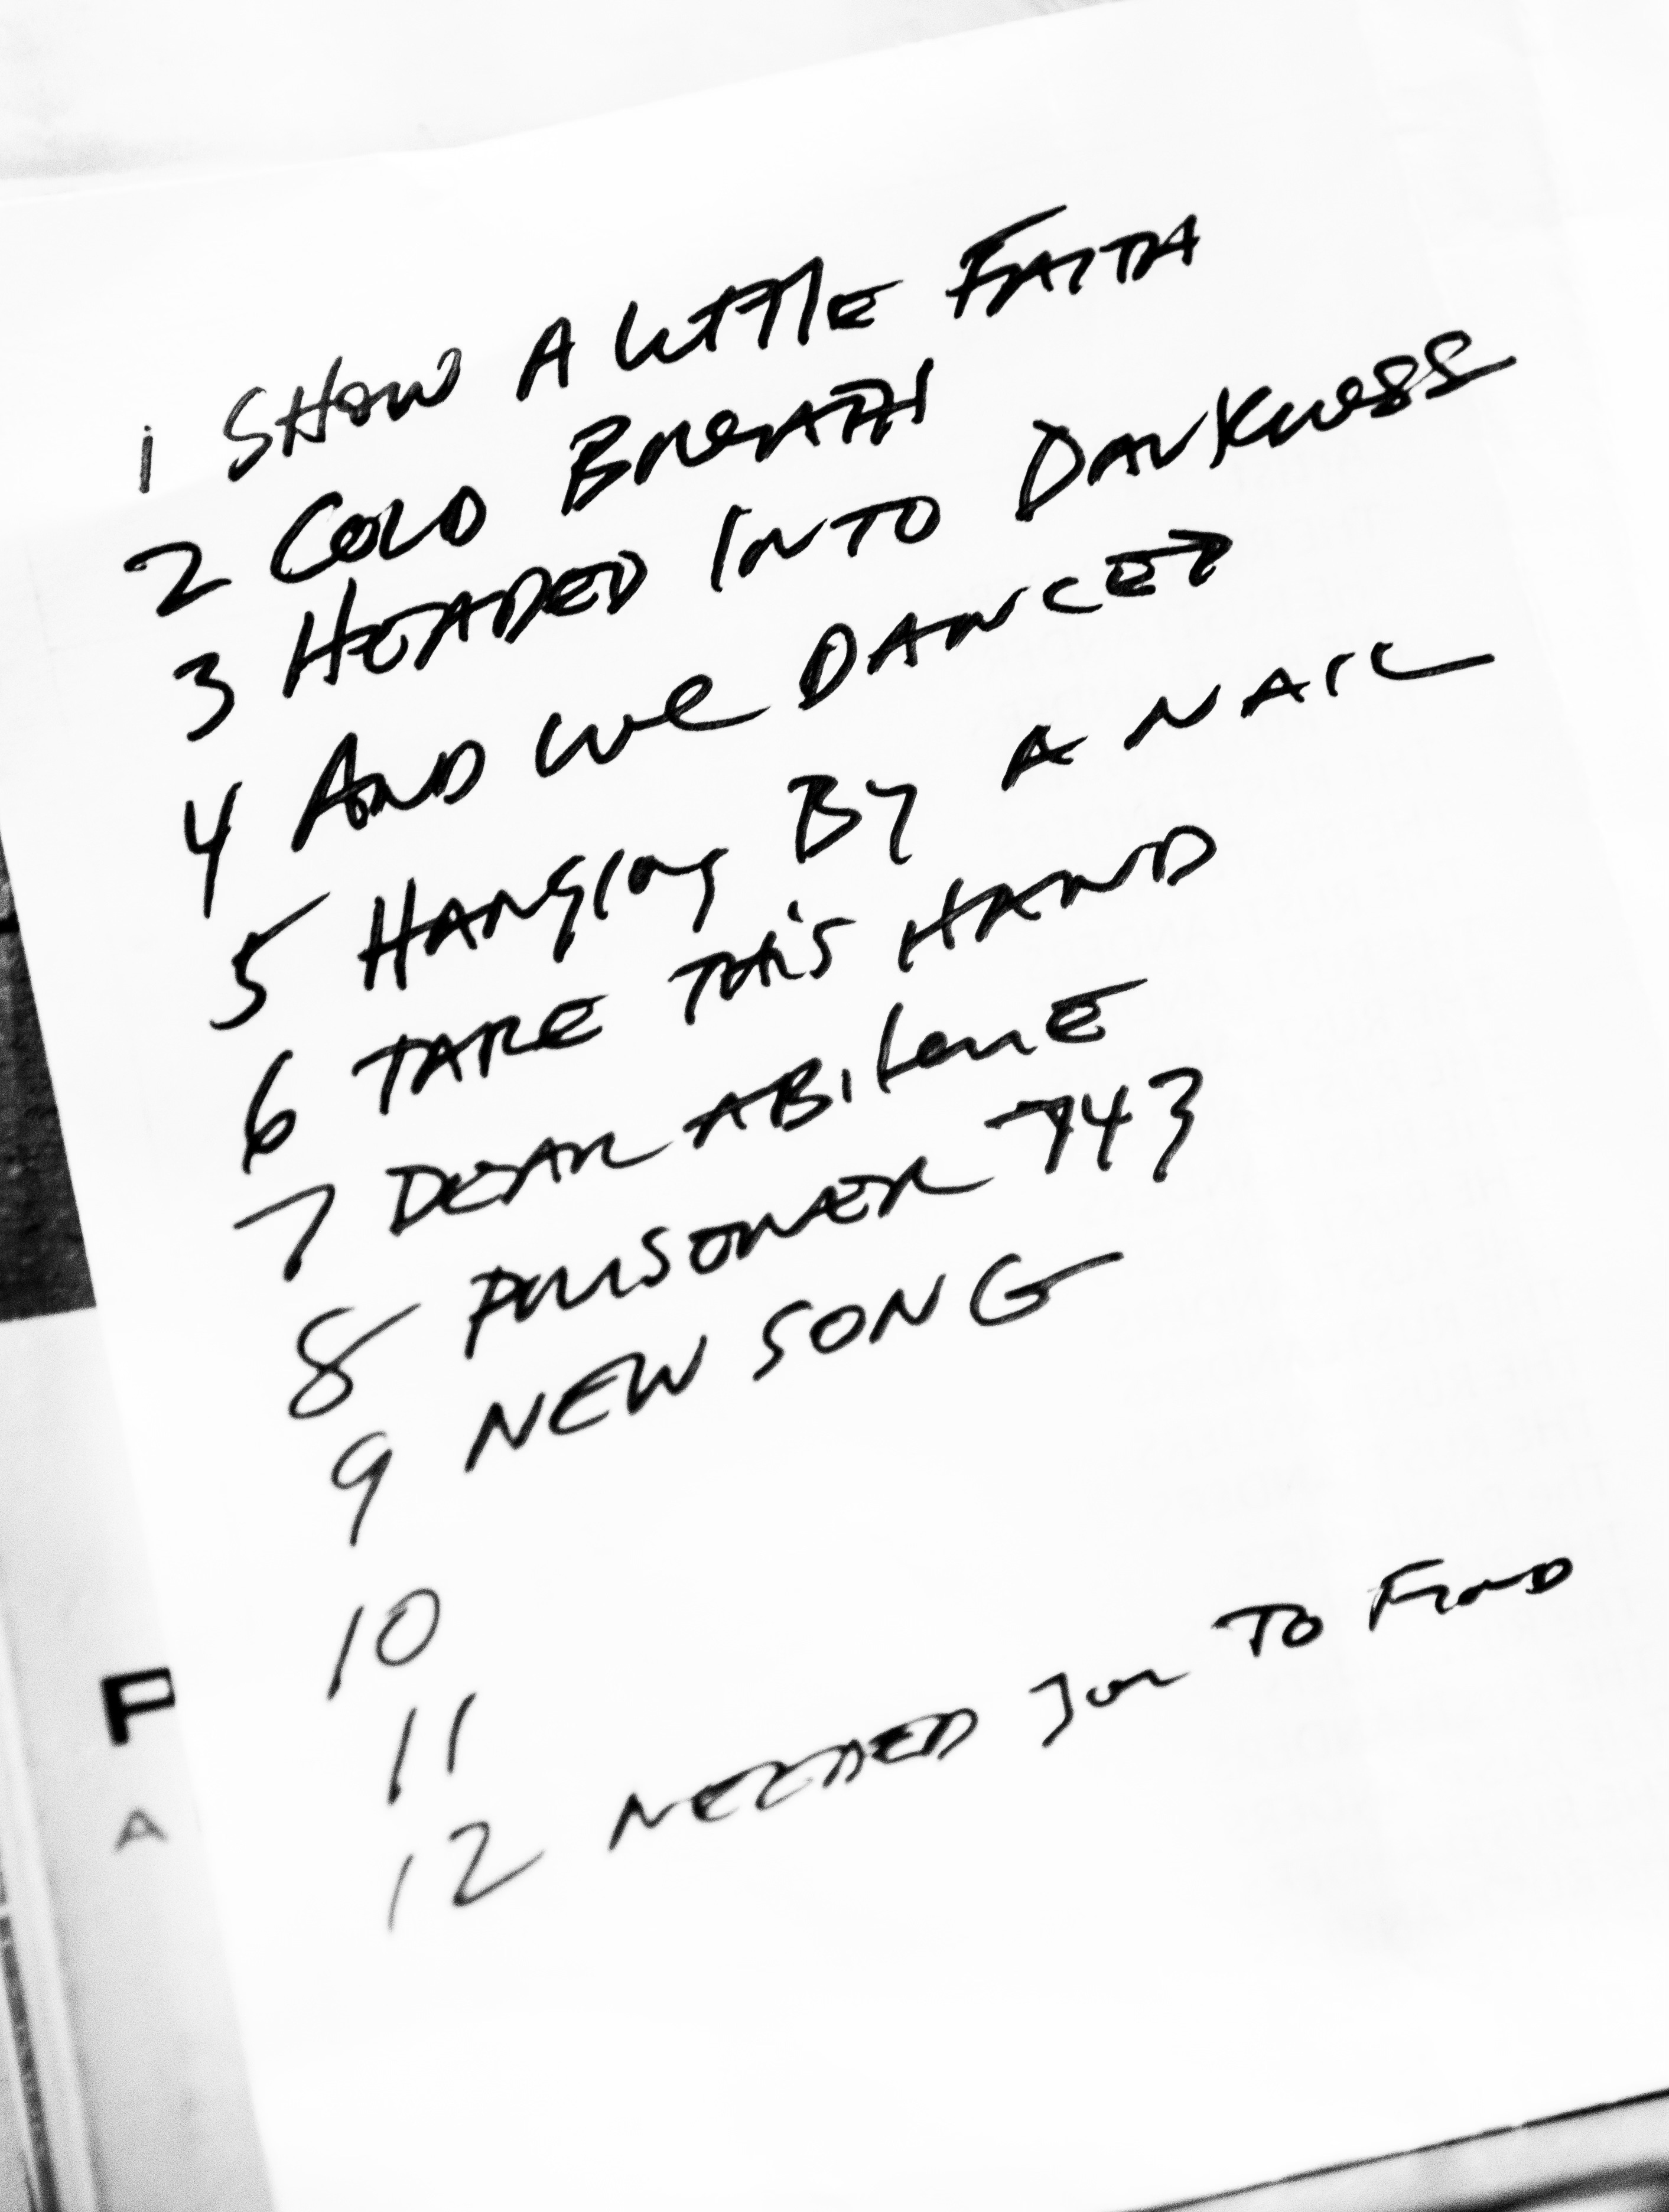 1 SHOW A LITTLE FAITH
2 COLD BREATH
3 HEADED INTO DARKNESS
4 AND WE DANCED
5 HANGING BY A NAIL
6 TAKE THIS HAND
7 DEAR ABILENE
8 PRISONER 743
9 NEW SONG
10
11
12 NEEDED TO FIND
P
A